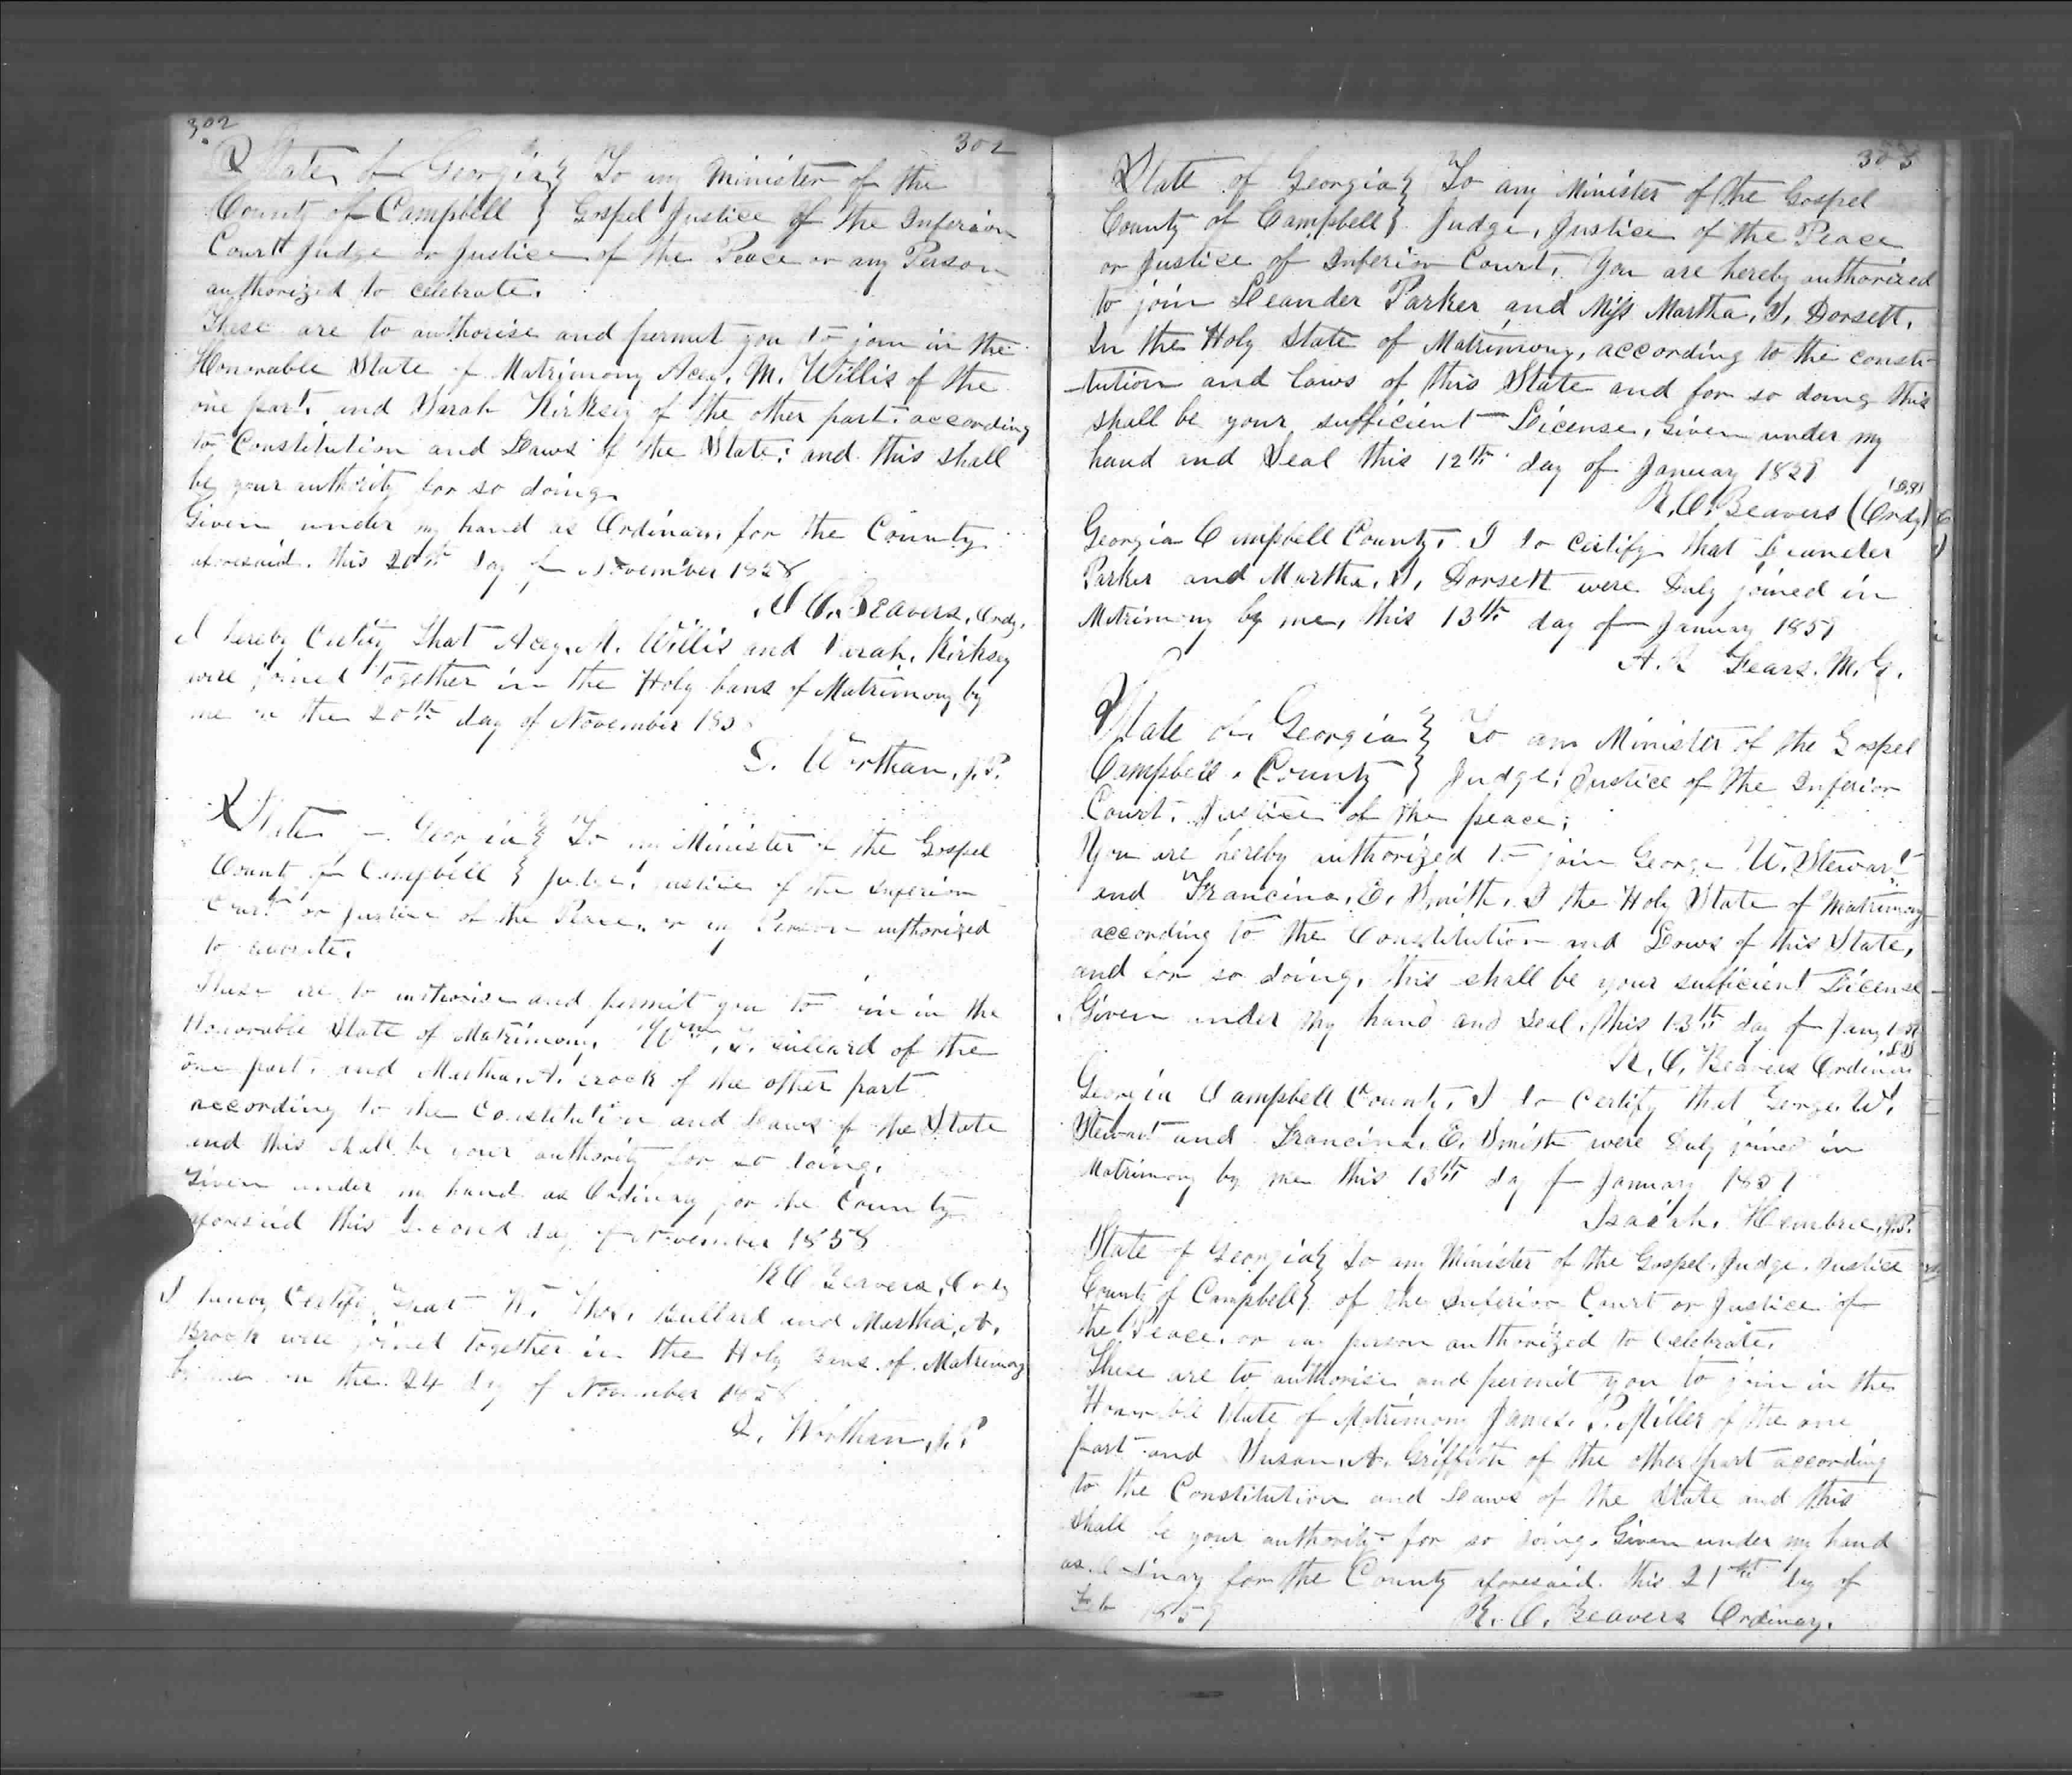 302
302
State of Georgia } To any Minister of the
County of Campbell } Gospel Justice of the Inferior
Court Judge or Justice of the Peace or any Person
authorized to celebrate.
These are to authorise and permit you to join in the
Honorable State of Matrimony Acey. M. Willis of the
one part. and Sarah Kirksey of the other part. according
to Constitution and Laws of the State; and this shall
be your authority for so doing.
Given under my hand as Ordinary for the County
aforesaid. this 20th day of November 1858
R C. Beavers, Ordy.
I hereby Certify That Acey. M. Willis and Sarah. Kirksey
were joined together in the Holy bans of Matrimony by
me on the 20th day of November 185
S. Worthan, J.P.
State of Georgia } To any Minister of the Gospel
County of Campbell } Judge, Justice of the Inferior
Court or Justice of the Peace, or any Person authorized
to
These are to authorise and permit you to join in the
Honorable State of Matrimony. Wm. T. Bullard of the
one part. and Martha. A. Brook of the other part
according to the Constitution and Laws of the State
and this shall be your authority for so doing.
Given under my hand as Ordinary for the County
aforesaid this Second day of November 1858
R C. Beavers, Ordy
I hereby Certify That W. Thos. Bullard and Martha. A.
Brook were joined together in the Holy Bans of Matrimony
by me on the 24 day of November 1858
S. Worthan, J.P.
303
State of Georgia } To any Minister of the Gospel
County of Campbell } Judge, Justice of the Peace
or Justice of Inferior Court, You are hereby authorized
to join Leander Parker and Miss Martha. S. Dorsett.
In the Holy State of Matrimony, according to the consti-
-tution and laws of this State and for so doing this
shall be your sufficient License, Given under my
hand and Seal this 12th day of January 1859
R. C. Beavers (Ordy)
Georgia Campbell County. I do certify that Leander
Parker and Martha. S. Dorsett were Duly joined in
Matrimony by me, this 13th day of January 1859
A. R Sears. M. G.
State of Georgia } To any Minister of the Gospel
Campbell. County } Judge; Justice of the Inferior
Court. Justice of the peace;
You are hereby authorized to join George W. Stewart
and Francina. E. Smith. I the Holy State of Matrimony
according to the Constitution and Laws of this State,
and for so doing. this shall be your sufficient License
Given under my hand and Seal. this 13th day of Jany
R. C. Beavers Ordinary
Georgia Campbell County. I do certify that George. W.
Stewart and Francina. E. Smith were Duly joined in
Matrimony by me this 13th day of January 1859
Isaiah. Hembree, J.P.
State of Georgia } To any Minister of the Gospel. Judge. Justice
County of Campbell } of the Inferior Court or Justice of
the Peace. or any person authorized to celebrate.
These are to authorise and permit you to join in the
Honorable State of Matrimony James. P. Miller of the one
part and Susan. A. Griffith of the other part according
to the Constitution and Laws of the State and this
shall be your authority for so doing. Given under my hand
as Ordinary for the County aforesaid. this 21st day of
Feb 1859 R. C. Beavers Ordinary.